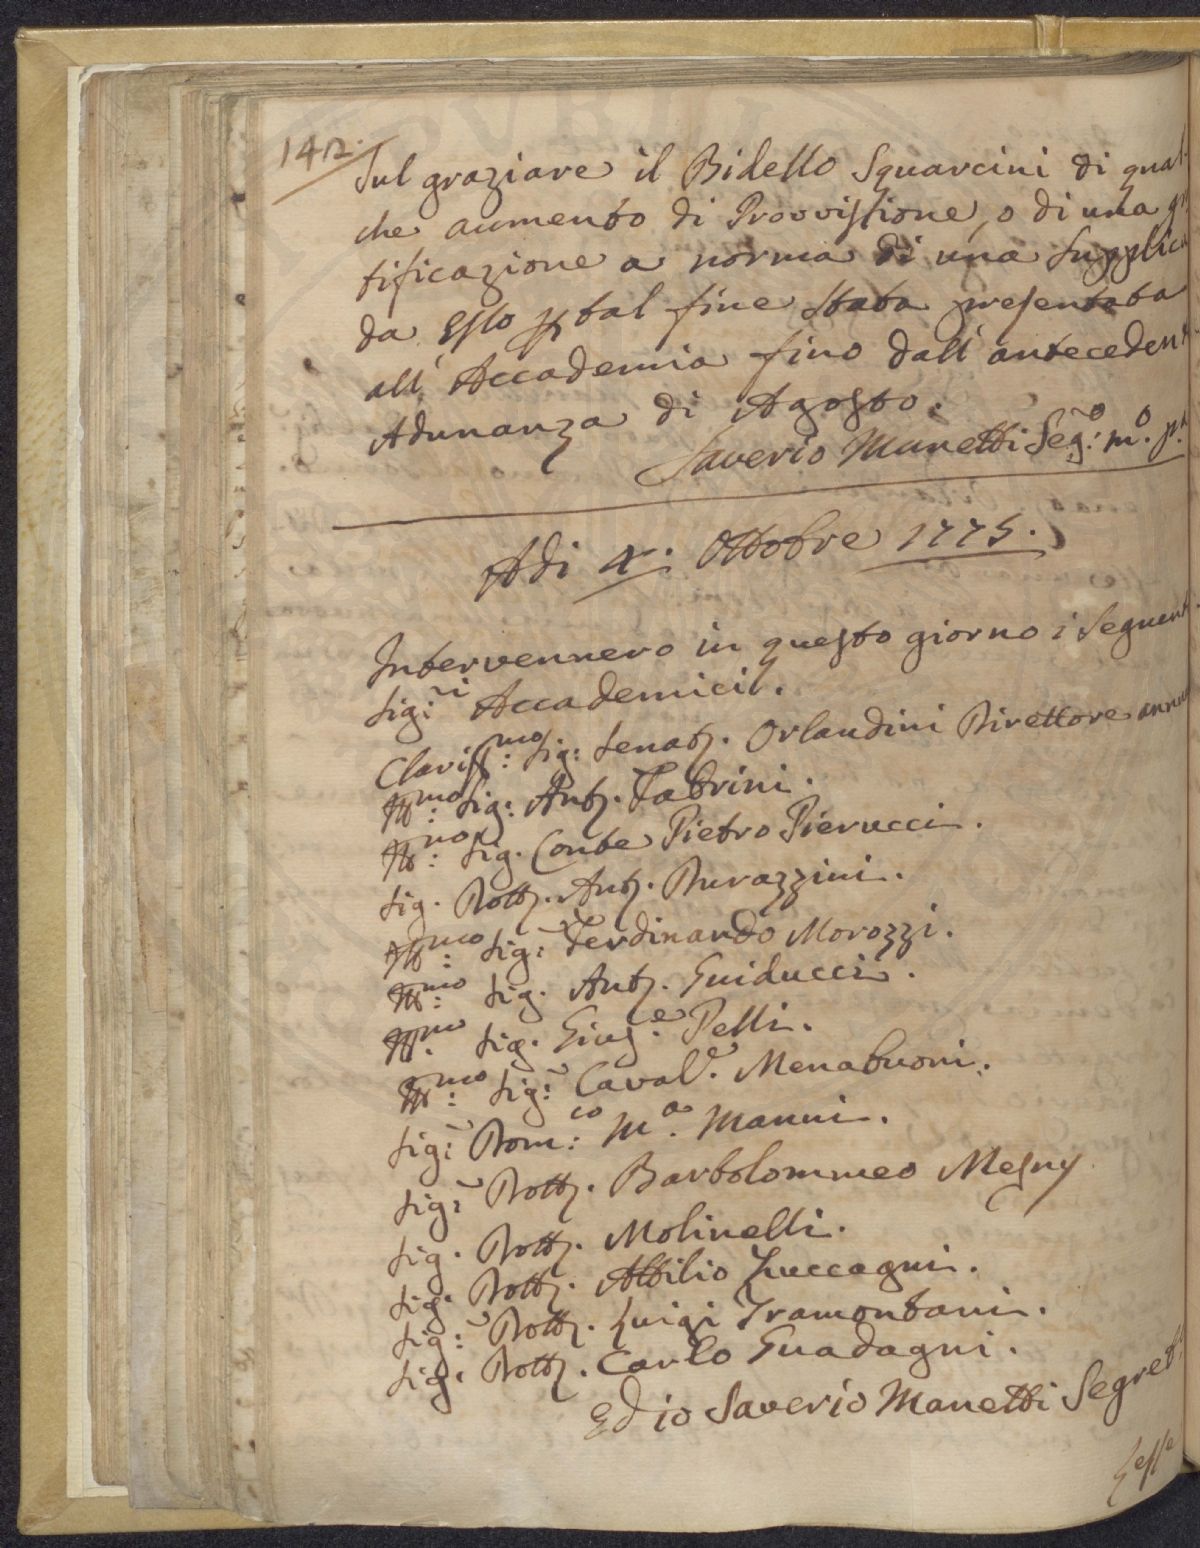 142.
Sul graziare il Bidello Squarcini di qual-
che aumento di Provvisione, o di una gr
tificazione a norma di una Supplica
da Esso p tal fine stata presentata
all' Accademia fino dall' antecedent
Adunanza di Agosto.
Saverio Manetti Seg.o m.o p.a
Adi 4: Ottobre 1775.
Intervennero in questo giorno i Seguent
Sig:i Accademici.
Clariss:mo Sig: Senat. Orlandini Direttore annu
Ill:mo Sig: Ant. Fabrini.
Ill:mo Sig. Conte Pietro Pierucci.
Sig. Dott. Ant. Durazzini.
Ill:mo Sig: Ferdinando Morozzi.
Ill:mo Sig. Ant. Guiducci.
Ill:mo Sig. Gius.e Pelli.
Ill:mo Sig: Caval.e Menabuoni.
Sig: Dom:co M.a Manni.
Sig: Dott. Bartolommeo Mesny
Sig. Dott. Molinelli.
Sig. Dott. Attilio Zuccagni.
Sig: Dott. Luigi Tramontani.
Sig. Dott. Carlo Guadagni.
Ed io Saverio Manetti Segret.